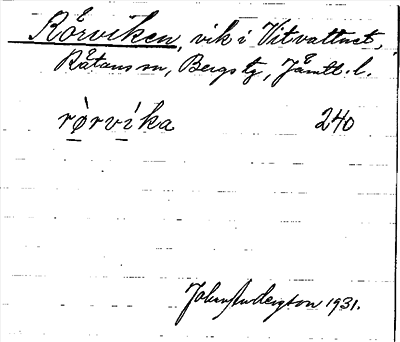 Rörviken, vik i Vitvattnet,
Råtans sn, Bergs tg, Jämtl. l.
rø̀rvíka 240
John Andersson 1931.